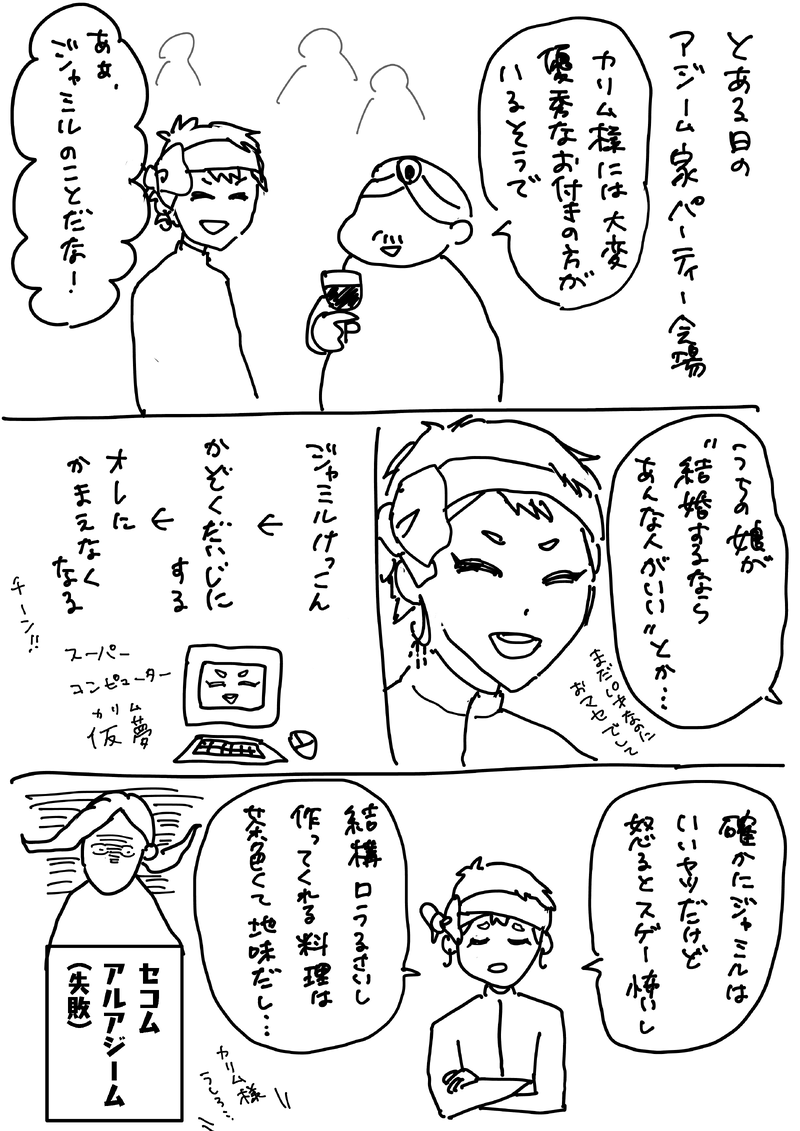 とある日の
アジーム家パーティー会場
カリム様には大変
優秀なお付きの方が
いるそうで
あぁ、
ジャミルのことだな！
うちの娘が
〝結婚するなら
あんな人がいい〟とか…
まだ小さなのに
おマセでしてぇ
ジャミルけっこん
←
かぞくだいじに
する
←
オレに
かまえなく
なる
チーン!!
スーパー
コンピューター
カリム
仮夢
確かにジャミルは
いいヤツだけど
怒るとスゲー怖いし
結構口うるさいし
作ってくれる料理は
茶色くて地味だし…
カリム様
うしろ…
セコム
アルアジーム
（失敗）